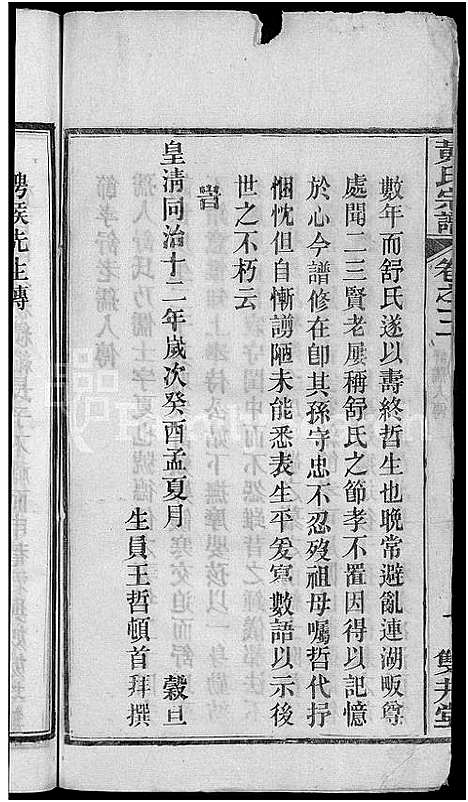 黄氏宗譜
卷之三
雙井堂
數年而舒氏遂以壽終哲生也晚常避亂連湖畈尊
處聞二三賢老屢稱舒氏之節孝不置因得以記憶
於心今譜修在卽其孫守忠不忍歿祖母囑哲代抒
悃忱但自慚謭陋未能悉表生平爰寫數語以示後
世之不朽云
皇清同治十二年歲次癸酉孟夏月
穀旦
生員王哲頓首拜撰
先生傳